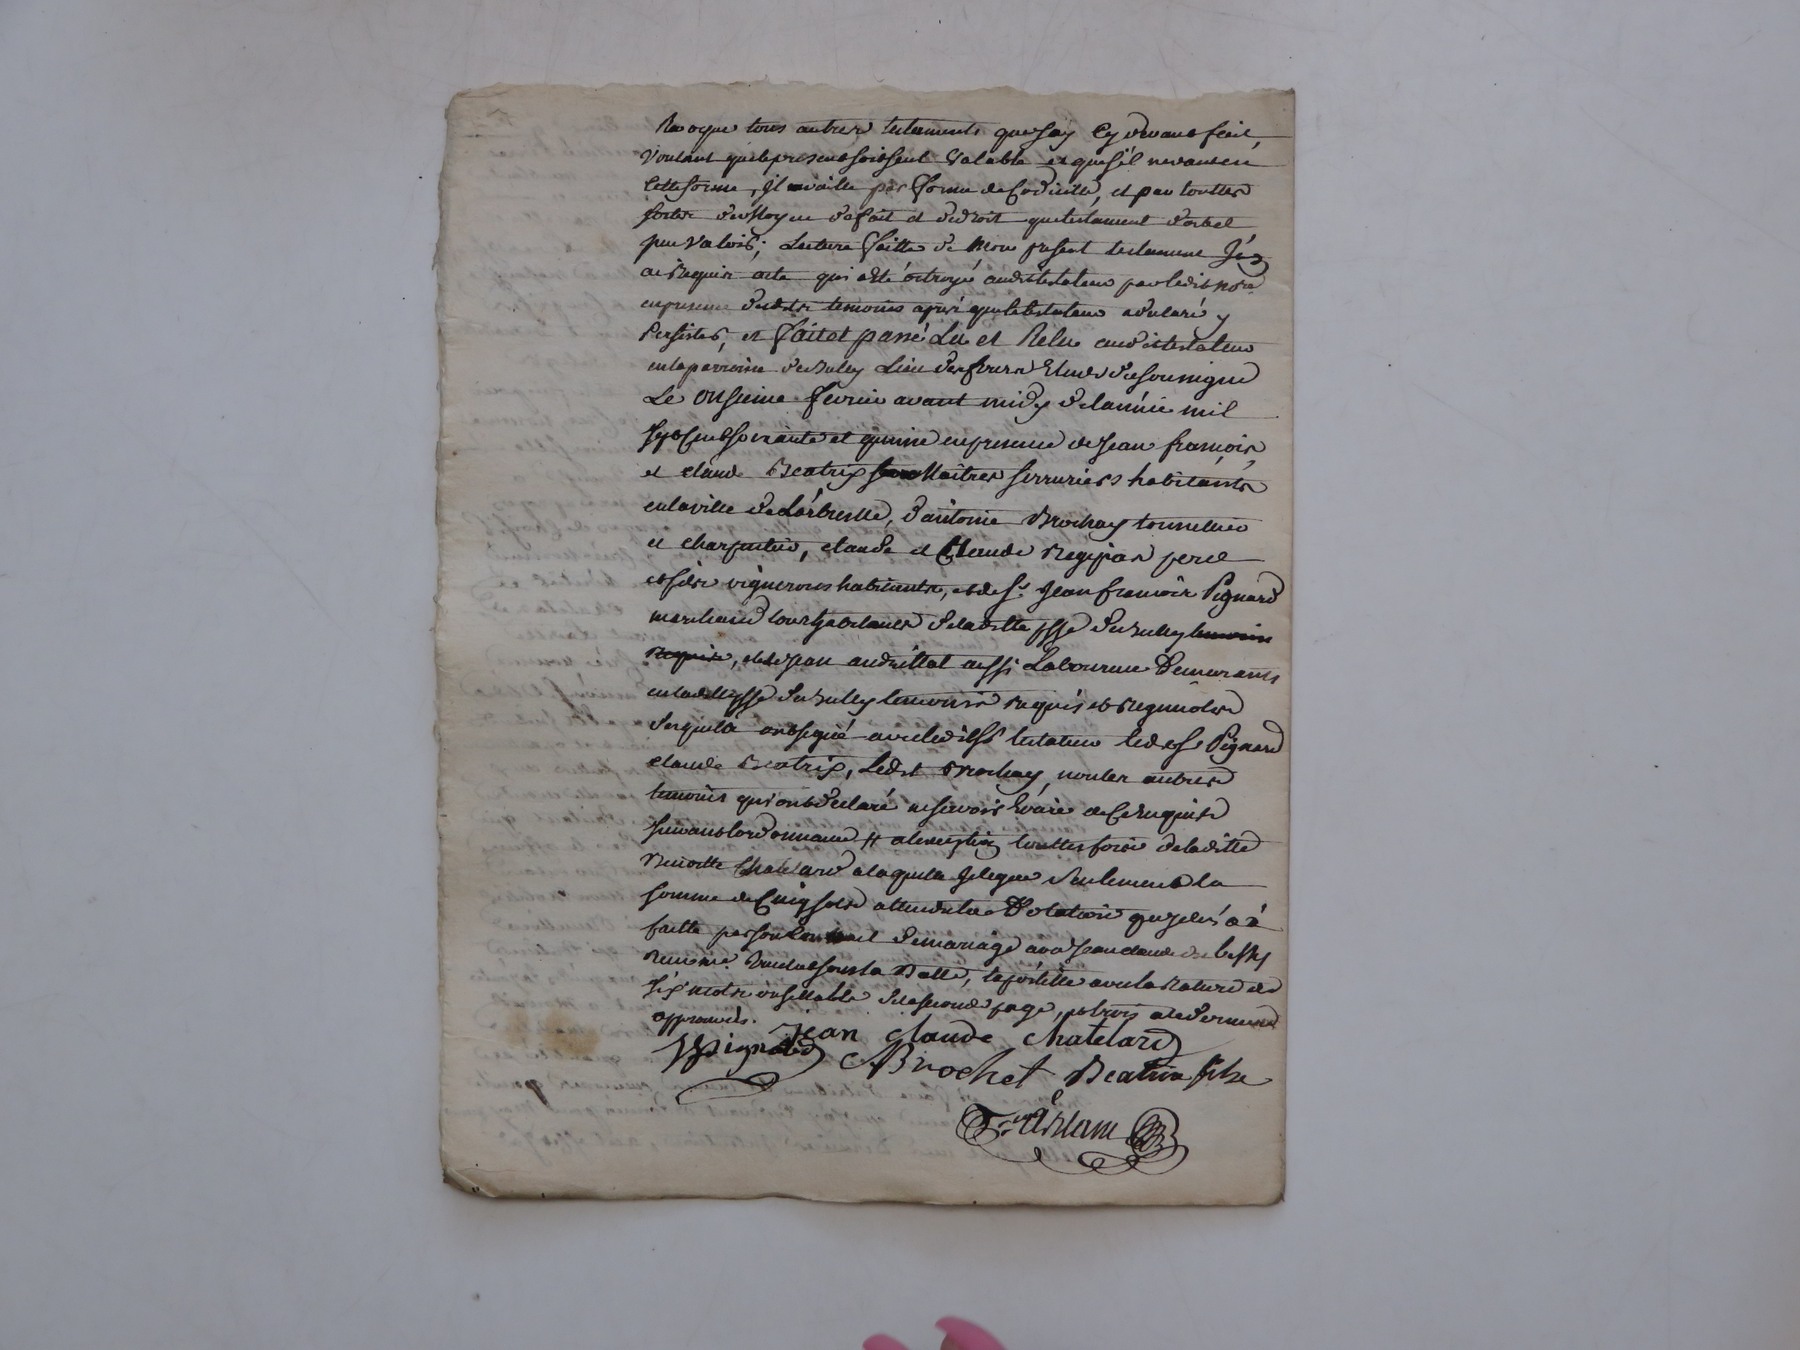 Revoque tous autres testaments que j'ay cy devant fait,
Voulant que le present soit seul valable et que s'il ne vaut en
cette forme, Il vaille par forme de Codicille, et par touttes
sortes de Moyen de fait et de droit que testament doibt
peu valoir; Lecture faitte de Mon present testament J'en
ai Requis acte qui a été octroyé audit testateur par ledit nore
en presence desdits temoins après que le testateur a declaré y
Persister, et fait et passé Lu et Relu audit testateur
en la parroisse de Bully Lieu des fours Etude du soussigné
Le onsieme fevrier avant midy de l'année mil
sept cent soixante et quinze en presence de Jean françois,
et claude Beatrix Maîtres serruriers habitants
en la ville de L'arbresle, d'antoine Brochay tonnellier
et charpentier, claude et Claude Regipas pere
et fils vignerons habitants, et de sr. Jean francois Pignard
marchand tous habitants de la ditte psse de Bully temoins
requis, et de Jean audrillat aussi Laboureur Demeurants
en laditte psse de Bully temoins requis et
desquels ont signé avec ledit sr testateur led. sr Pignard
claude Beatrix, Ledit Brochay, non les autres
temoins qui ont declaré ne savoir Ecrire de ce Requis
suivant lordonnance # a lexception touttes fois de laditte
Benoitte Chatelard a laquelle Je legue seulement la
somme de Cinq sols attendu la Dotation que je luy a
faitte par son Contrat de mariage avec Jean claude
sous la Datte, la postille avec la Rature des
six mots de la seconde page, et trois a la derniere
approuvés.
Jean claude chatelard
JF Pignard A Brochet Beatrix fils